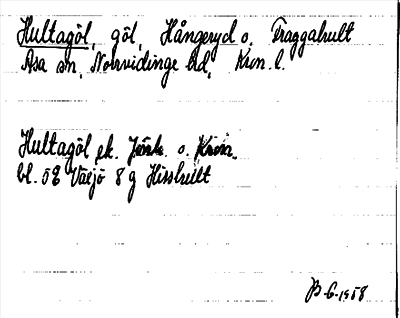 Hultagöl, göl, Hångeryd o. Fraggahult
Asa sn, Norrvidinge hd, Kron. l.
Hultagöl ek. Jönk. o. Kron.
bl. 5E Växjö 8 g Hisshult
B-6-1958